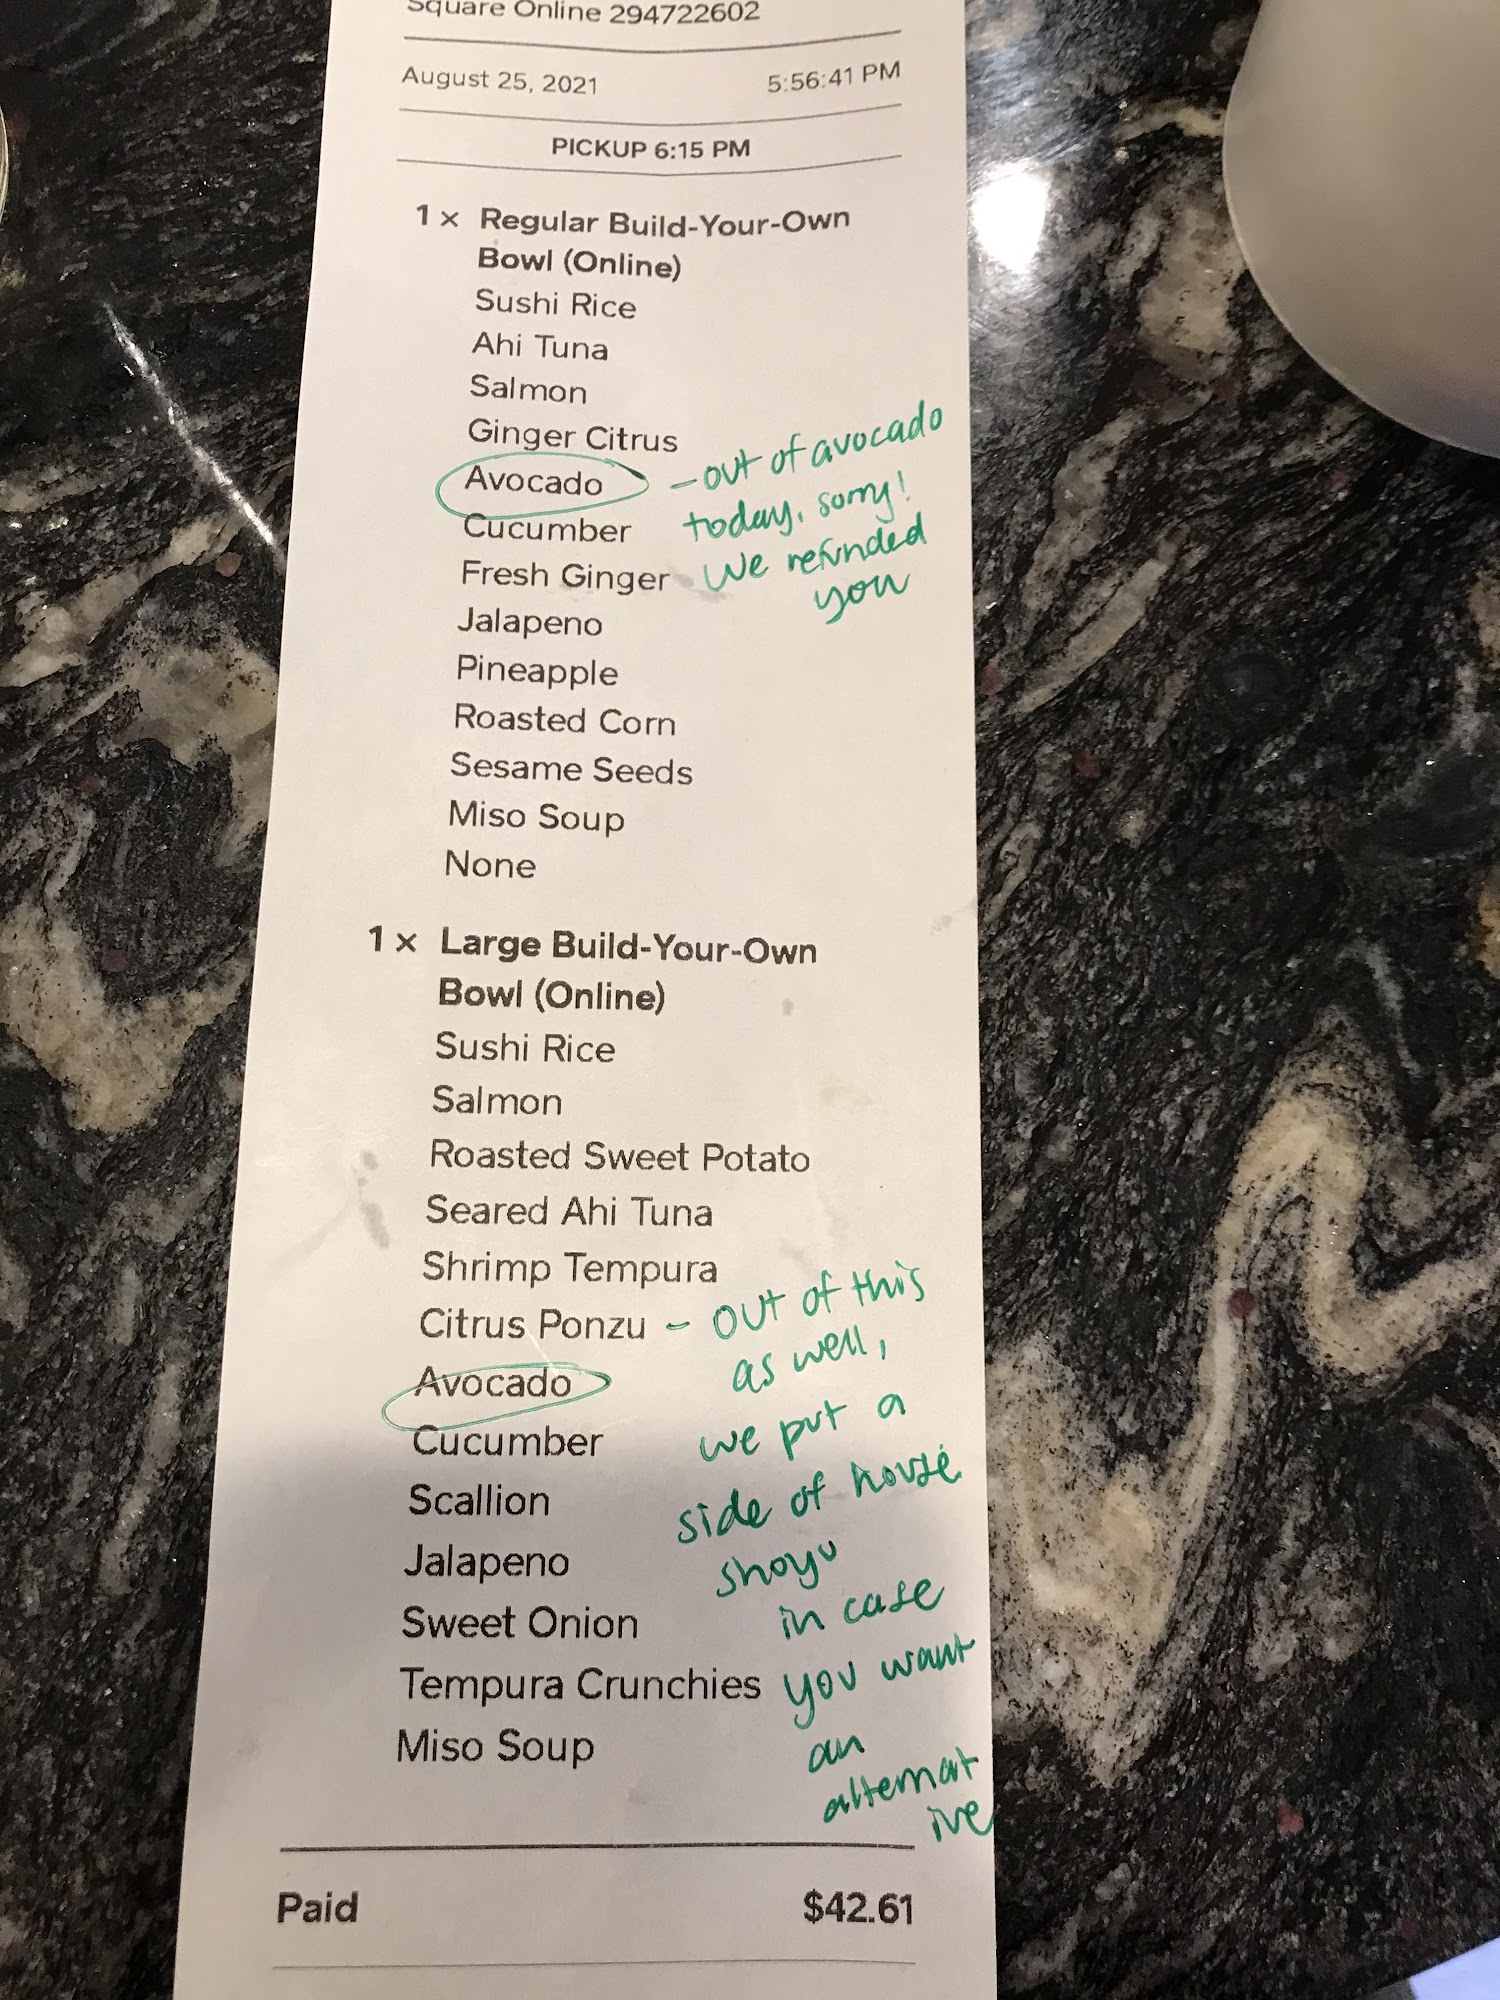 Square Online 294722602
August 25, 2021 5:56:41 PM
PICKUP 6:15 PM
1 x Regular Build-Your-Own
Bowl (Online)
Sushi Rice
Ahi Tuna
Salmon
Ginger Citrus
Avocado - out of avocado
today, sorry!
Cucumber
We refunded
Fresh Ginger
you
Jalapeno
Pineapple
Roasted Corn
Sesame Seeds
Miso Soup
None
1 x Large Build-Your-Own
Bowl (Online)
Sushi Rice
Salmon
Roasted Sweet Potato
Seared Ahi Tuna
Shrimp Tempura
Citrus Ponzu - out of this
as well,
Avocado
we put a
Cucumber
side of house
Scallion
shoyu
Jalapeno
in case
Sweet Onion
you want
Tempura Crunchies
an
Miso Soup
alternat
ive
Paid $42.61